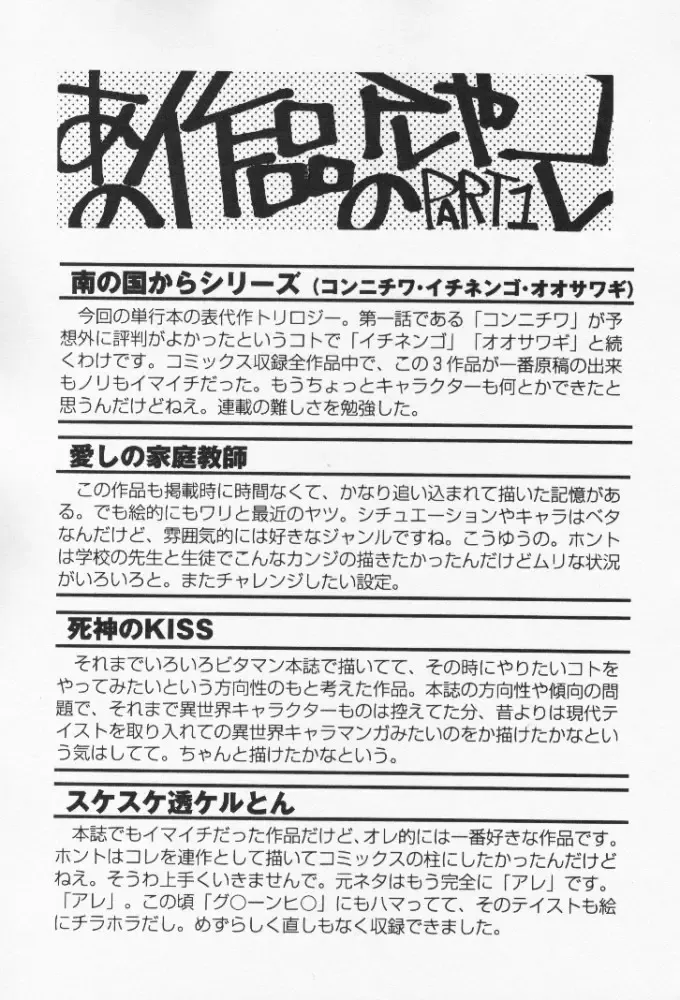 あの作品のアレやコレ PART1
南の国からシリーズ(コンニチワ・イチネンゴ・オオサワギ)
今回の単行本の表代作トリロジー。第一話である「コンニチワ」が予
想外に評判がよかったというコトで「イチネンゴ」「オオサワギ」と続
くわけです。コミックス収録全作品中で、この3作品が一番原稿の出来
もノリもイマイチだった。もうちょっとキャラクターも何とかできたと
思うんだけどねえ。連載の難しさを勉強した。
愛しの家庭教師
この作品も掲載時に時間なくて、かなり追い込まれて描いた記憶があ
る。でも絵的にもワリと最近のヤツ。シチュエーションやキャラはベタ
なんだけど、雰囲気的には好きなジャンルですね。こうゆうの。ホント
は学校の先生と生徒でこんなカンジの描きたかったんだけどムリな状況
がいろいろと。またチャレンジしたい設定。
死神のKISS
それまでいろいろビタマン本誌で描いてて、その時にやりたいコトを
やってみたいという方向性のもと考えた作品。本誌の方向性や傾向の問
題で、それまで異世界キャラクターものは控えてた分、昔よりは現代テ
イストを取り入れての異世界キャラマンガみたいのをか描けたかなとい
う気はしてて。ちゃんと描けたかなという。
スケスケ透ケルとん
本誌でもイマイチだった作品だけど、オレ的には一番好きな作品です。
ホントはコレを連作として描いてコミックスの柱にしたかったんだけど
ねえ。そうわ上手くいきませんで。元ネタはもう完全に「アレ」です。
「アレ」。この頃「グ○ーンヒ○」にもハマってて、そのテイストも絵
にチラホラだし。めずらしく直しもなく収録できました。